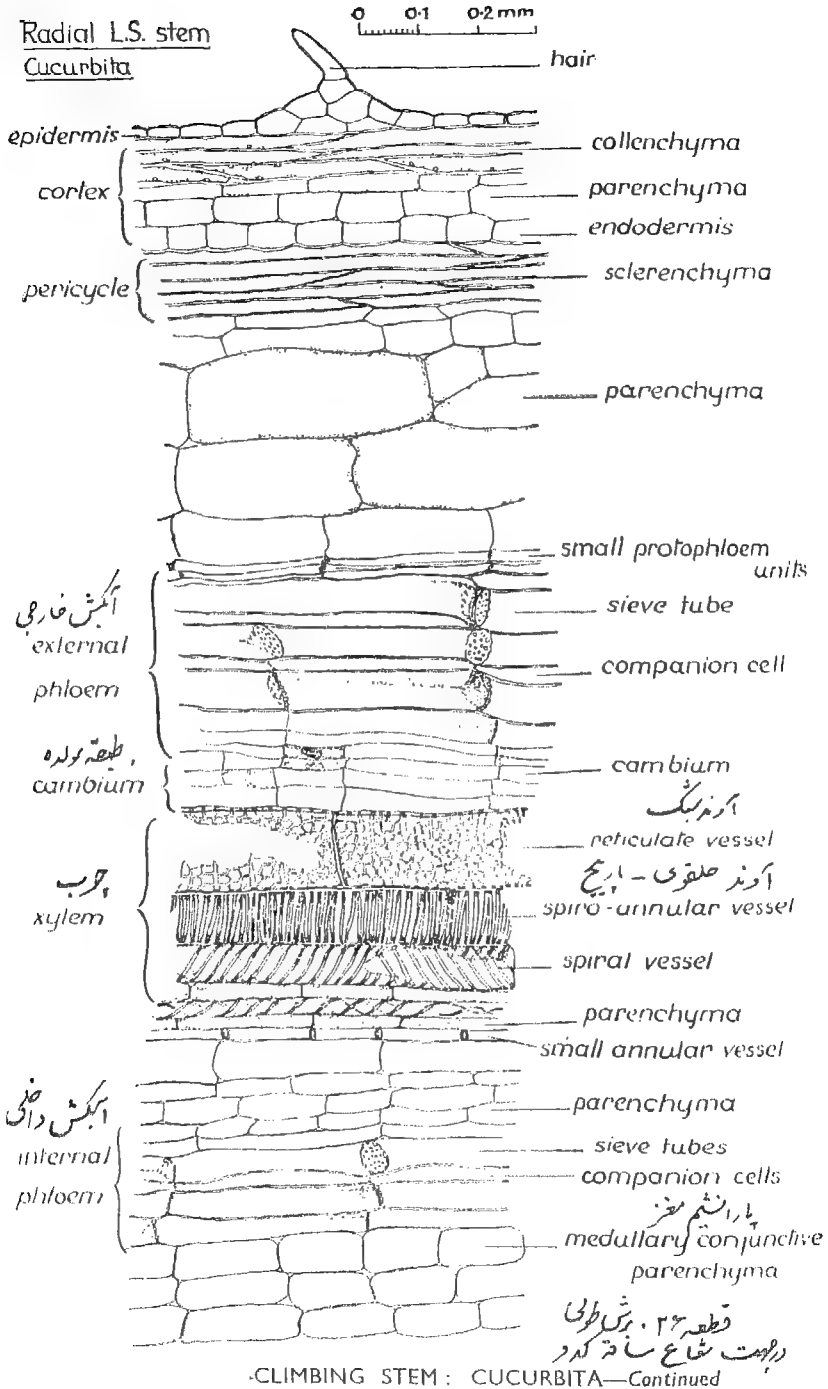 Radial L.S. stem
Cucurbita
0 0.1 0.2 mm
hair
epidermis
collenchyma
cortex
parenchyma
endodermis
pericycle
sclerenchyma
parenchyma
small protophloem
units
آبکش خارجی
external
phloem
sieve tube
companion cell
طبقه مولده
cambium
cambium
آوند مشبک
reticulate vessel
چوب
xylem
آوند حلقوی - مارپیچ
spiro-annular vessel
spiral vessel
parenchyma
small annular vessel
parenchyma
آبکش داخلی
internal
phloem
sieve tubes
companion cells
پارانشیم مغز
medullary conjunctive
parenchyma
قطعه ۲۶. برش طولی
درجهت شعاع ساقه کدو
CLIMBING STEM: CUCURBITA—Continued